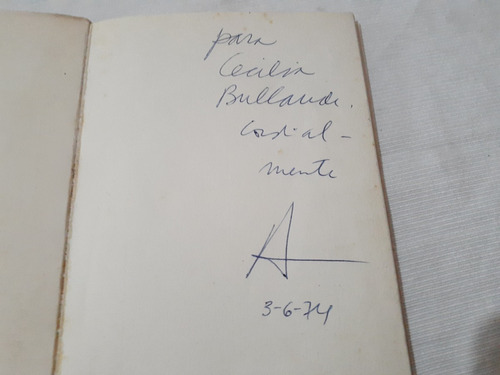 para
Cecilia
Bullaude.
cordial-
mente
A
3-6-74